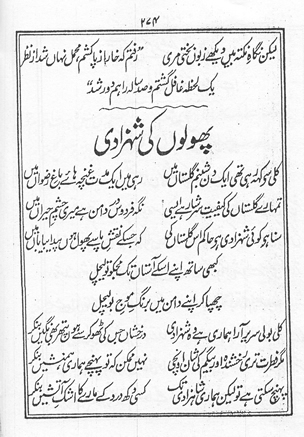 ۲۷۴
لیکن نگاہِ نکتہ بیں دیکھے زبوں بختی مری
”رفتم کہ خار از پا کشم محمل نہاں شد از نظر
یک لحظہ غافل گشتم و صد سالہ راہم دور شد“
پھولوں کی شہزادی
کلی سے کہہ رہی تھی ایک دن شبنم گلستاں میں
رہی میں ایک مدت غنچہ ہائے باغِ رضواں میں
تمہارے گلستاں کی کیفیت سرشار ہے ایسی
نگہ فردوس در دامن ہے میری چشمِ حیراں میں
سنا ہے کوئی شہزادی ہے حاکم اس گلستاں کی
کہ جس کے نقشِ پا سے پھول ہوں پیدا بیاباں میں
کبھی ساتھ اپنے اس کے آستاں تک مجھ کو تو لے چل
چھپا کر اپنے دامن میں برنگِ موجِ بو لے چل
کلی بولی سریر آرا ہماری ہے وہ شہزادی
درخشاں جس کی ٹھوکر سے ہوں پتھر بھی نگیں بن کر
مگر فطرت تری افتندہ اور بیگم کی شان اونچی
نہیں ممکن کہ تو پہنچے ہماری ہم نشیں بن کر
پہنچ سکتی ہے تو لیکن ہماری شاہزادی تک
کسی دکھ درد کے مارے کا اشکِ آتشیں بن کر